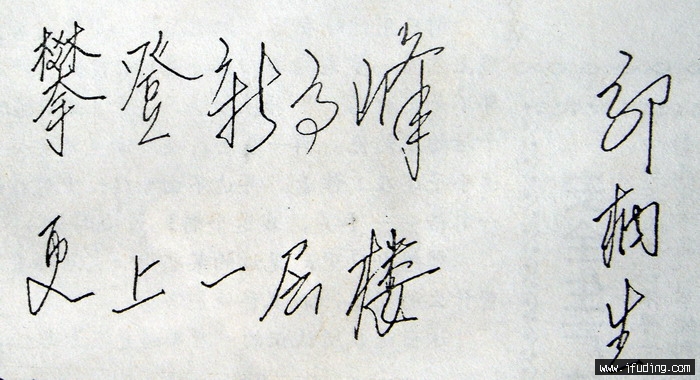 攀登新高峰
更上一层楼
邵柄生
www.ifuding.com